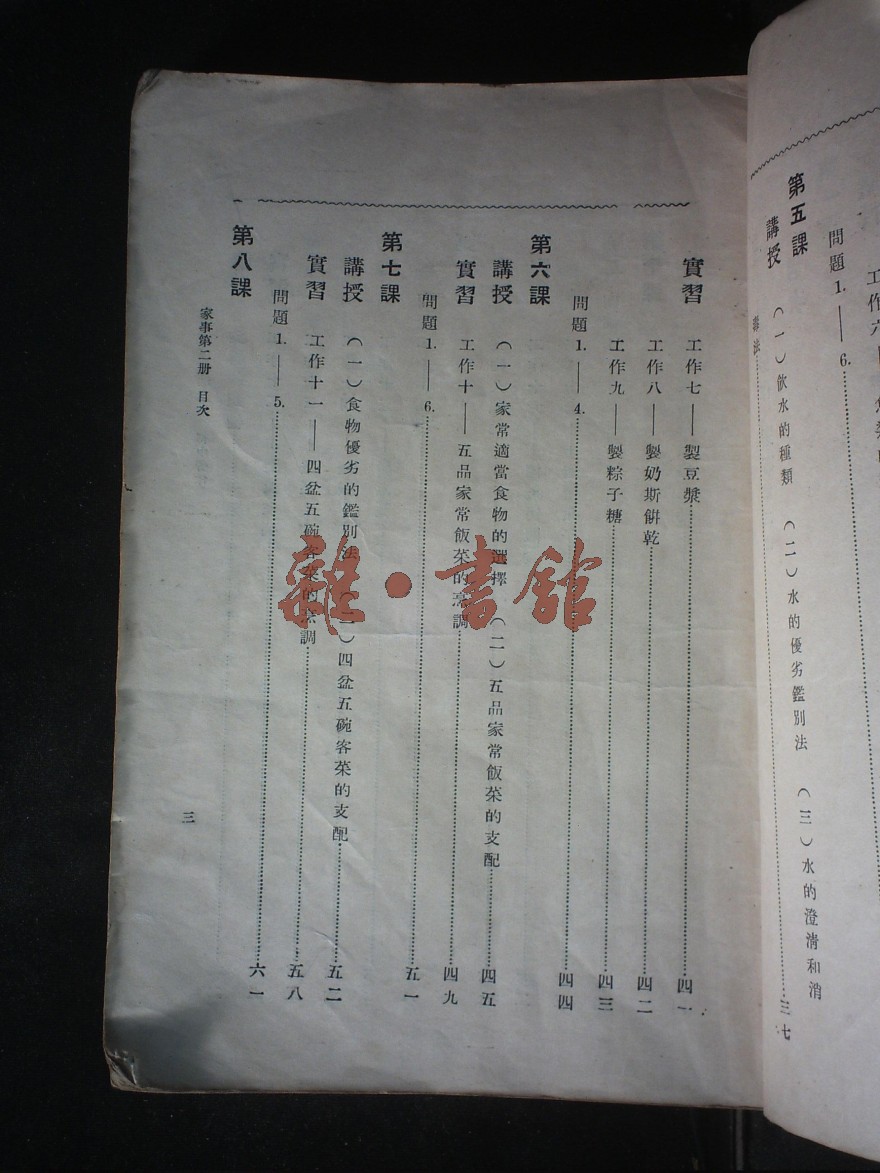 問題1.——6.
第五課
講授 (一)飲水的種類 (二)水的優劣鑑別法 (三)水的澄清和消
毒法……三七
實習 工作七——製豆漿……四一
工作八——製奶斯餅乾……四二
工作九——製粽子糖……四三
問題1.——4.……四四
第六課
講授 (一)家常適當食物的選擇 (二)五品家常飯菜的支配……四五
實習 工作十——五品家常飯菜的烹調……四九
問題1.——6.……五一
第七課
講授 (一)食物優劣的鑑別法 (二)四盆五碗客菜的支配……五二
實習 工作十一——四盆五碗客菜的烹調……五八
問題1.——5.……六一
第八課
家事第二册 目次
三
雜·書館